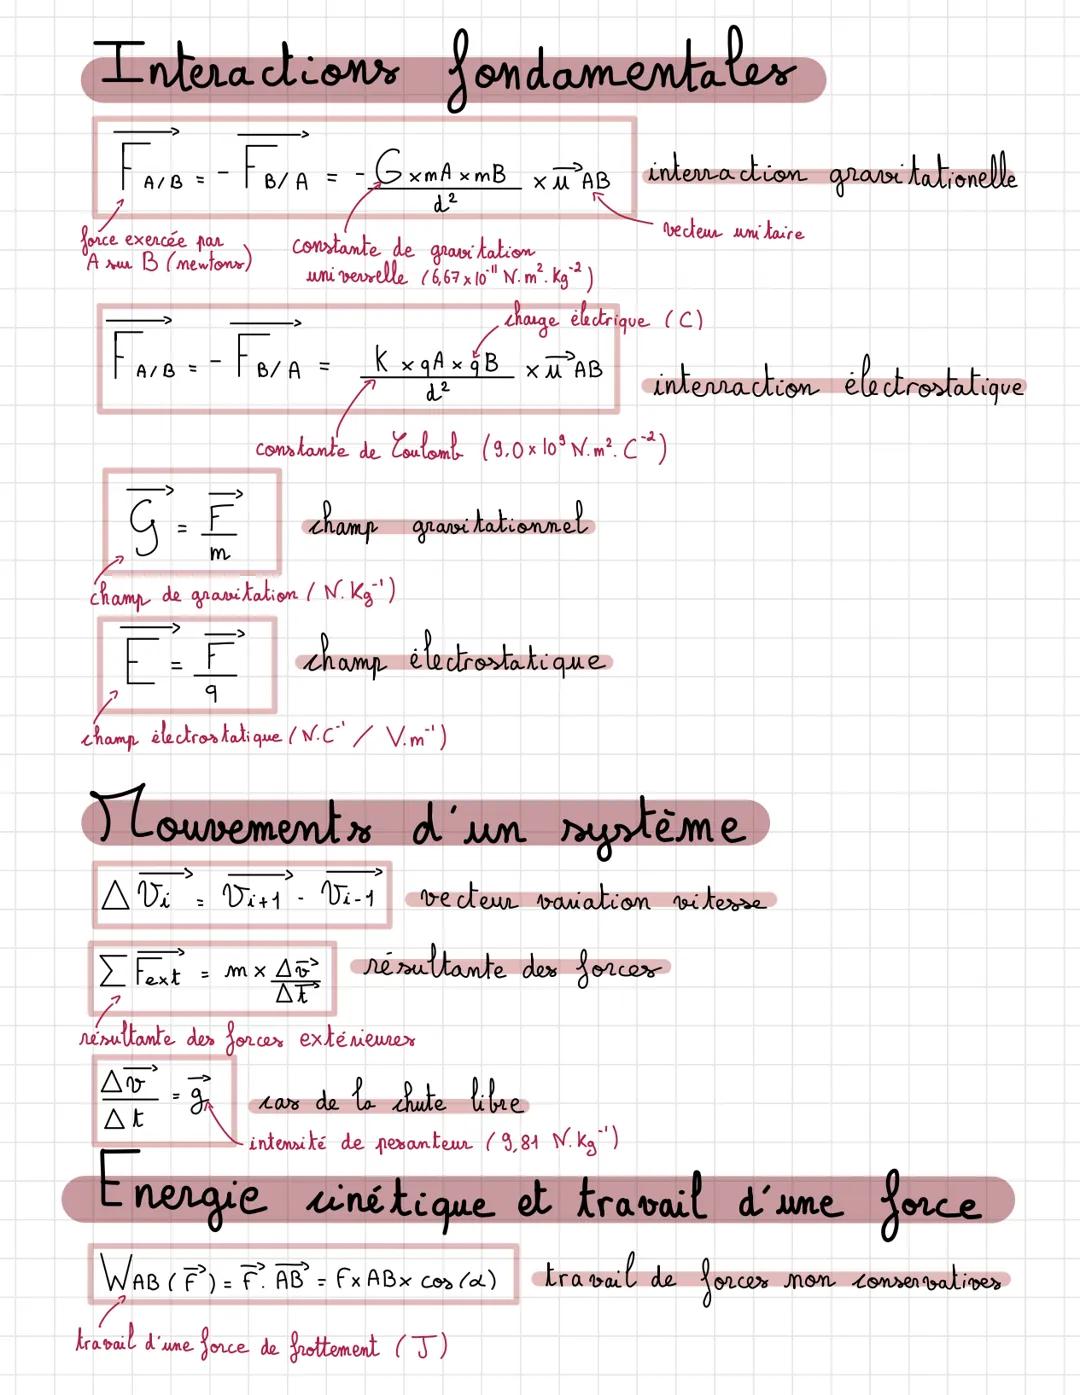 Interactions fondamentales
F A/B = - F B/A = - G × mA × mB / d² × u AB
interraction gravitationelle
vecteur unitaire
force exercée par
A sur B (newtons)
constante de gravitation
universelle (6,67 × 10⁻¹¹ N.m².Kg⁻²)
charge électrique (C)
F A/B = - F B/A = K × qA × qB / d² × u AB
interraction électrostatique
constante de Coulomb (9,0 × 10⁹ N.m².C⁻²)
G = F / m
champ gravitationnel
champ de gravitation (N.Kg⁻¹)
E = F / q
champ électrostatique
champ électrostatique (N.C⁻¹ / V.m⁻¹)
Mouvements d'un système
Δ Vi = Vi+1 - Vi-1
vecteur variation vitesse
Σ Fext = m × Δv / Δt
résultante des forces
résultante des forces extérieures
Δv / Δt = g
cas de la chute libre
intensité de pesanteur (9,81 N.Kg⁻¹)
Energie cinétique et travail d'une force
WAB (F) = F. AB = F × AB × cos (α)
travail de forces non conservatives
travail d'une force de frottement (J)